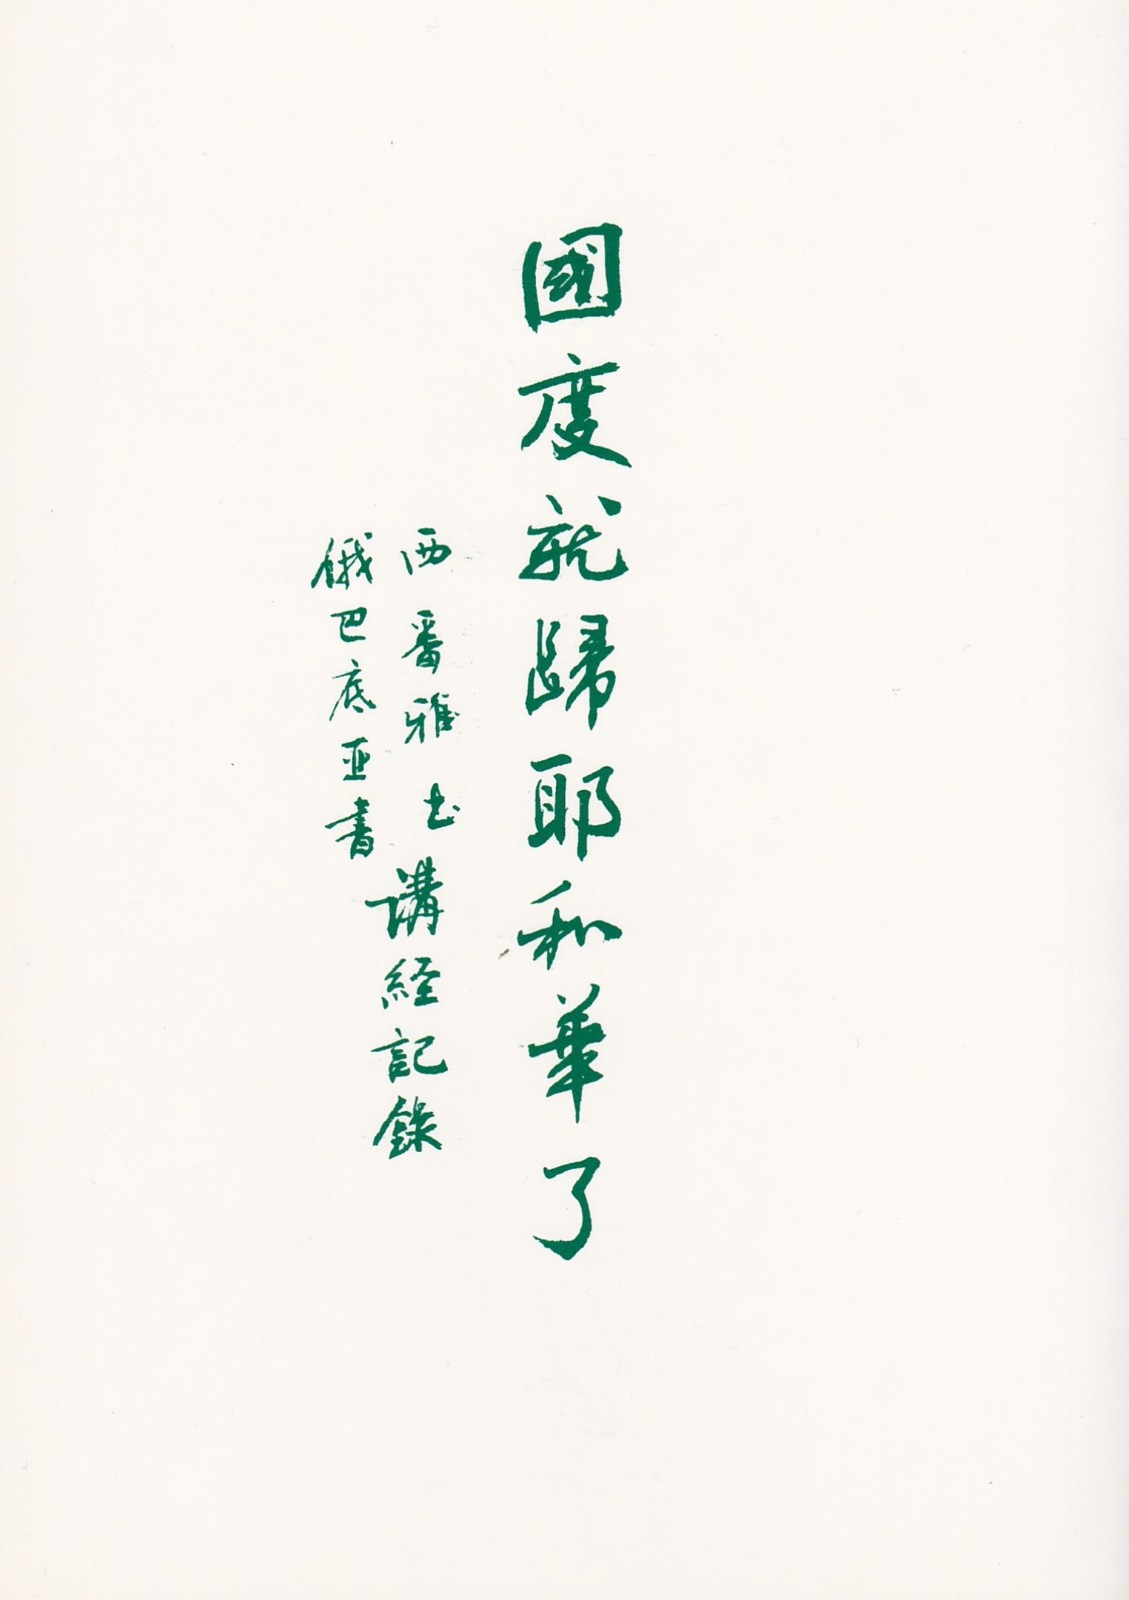 國度就歸耶和華了
西番雅书
俄巴底亚書
講経記錄